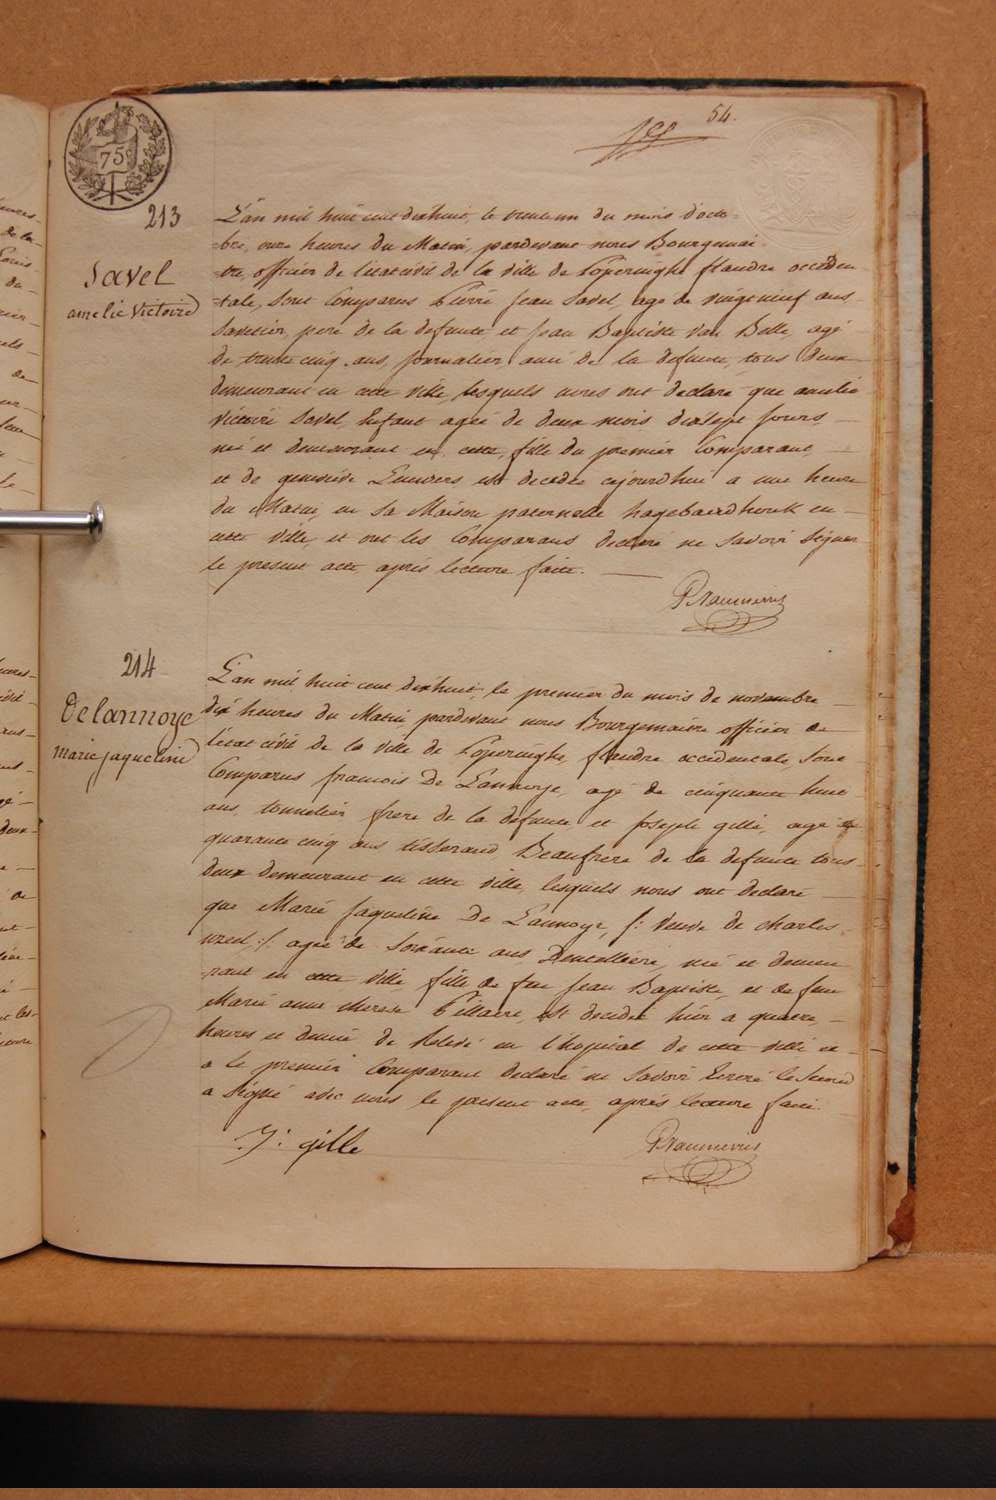 54.
75c
213
Savel
amelie victoire
L'an mil huit cent dixhuit, le trente un du mois d'octo=
=bre, onze heures du Matin, pardevant nous Bourguemai=
=tre, officier de l'etat civil de la ville de Poperinghe flandre occiden
=tale, sont Comparus Pierre Jean Savel, agé de vingt neuf ans
Savetier, pere de la defunte et Jean Baptiste Van Belle, agé
de trente cinq ans, Journalier ami de la defunte, tous deux
demeurant en cette ville, lesquels nous ont declaré que amelie
victoire Savel, Enfant agée de deux mois dixsept jours,
né et demeurant en cette, fille du premier Comparant,
et de geneviève est decedée cejourdhui a une heure
du Matin, en sa Maison paternelle en
cette ville, et ont les Comparans declaré ne Savoir Signer
le present acte, après lecture faite.
214
Delannoye
marie jaqueline
L'an mil huit cent dixhuit, le premier du mois de novembre
dix heures du Matin pardevant nous Bourgemaitre officier de
l'etat civil de la ville de Poperinghe, flandre occidentale, sont
Comparus francois De Lannoye, agé de cinquante huit
ans, tonnelier frere de la defunte et Joseph gille, agé de
quarante cinq ans tisserand Beaufrere de la defunte tous
deux demeurant en cette ville, lesquels nous ont declaré
que Marie Jaqueline De Lannoye, /: veuve de charles
:/ agée de soixante ans, Dentelliere, né et demeu
=rant en cette ville, fille de feu Jean Baptiste, et de feue
Marie anne therese est decedée hier a quatre
heures et demie de Relevé en l'hopital de cette ville et
a le premier Comparant declaré ne Savoir Ecrire le Second
a Signé avec nous le present acte, après lecture faite.
J: gille